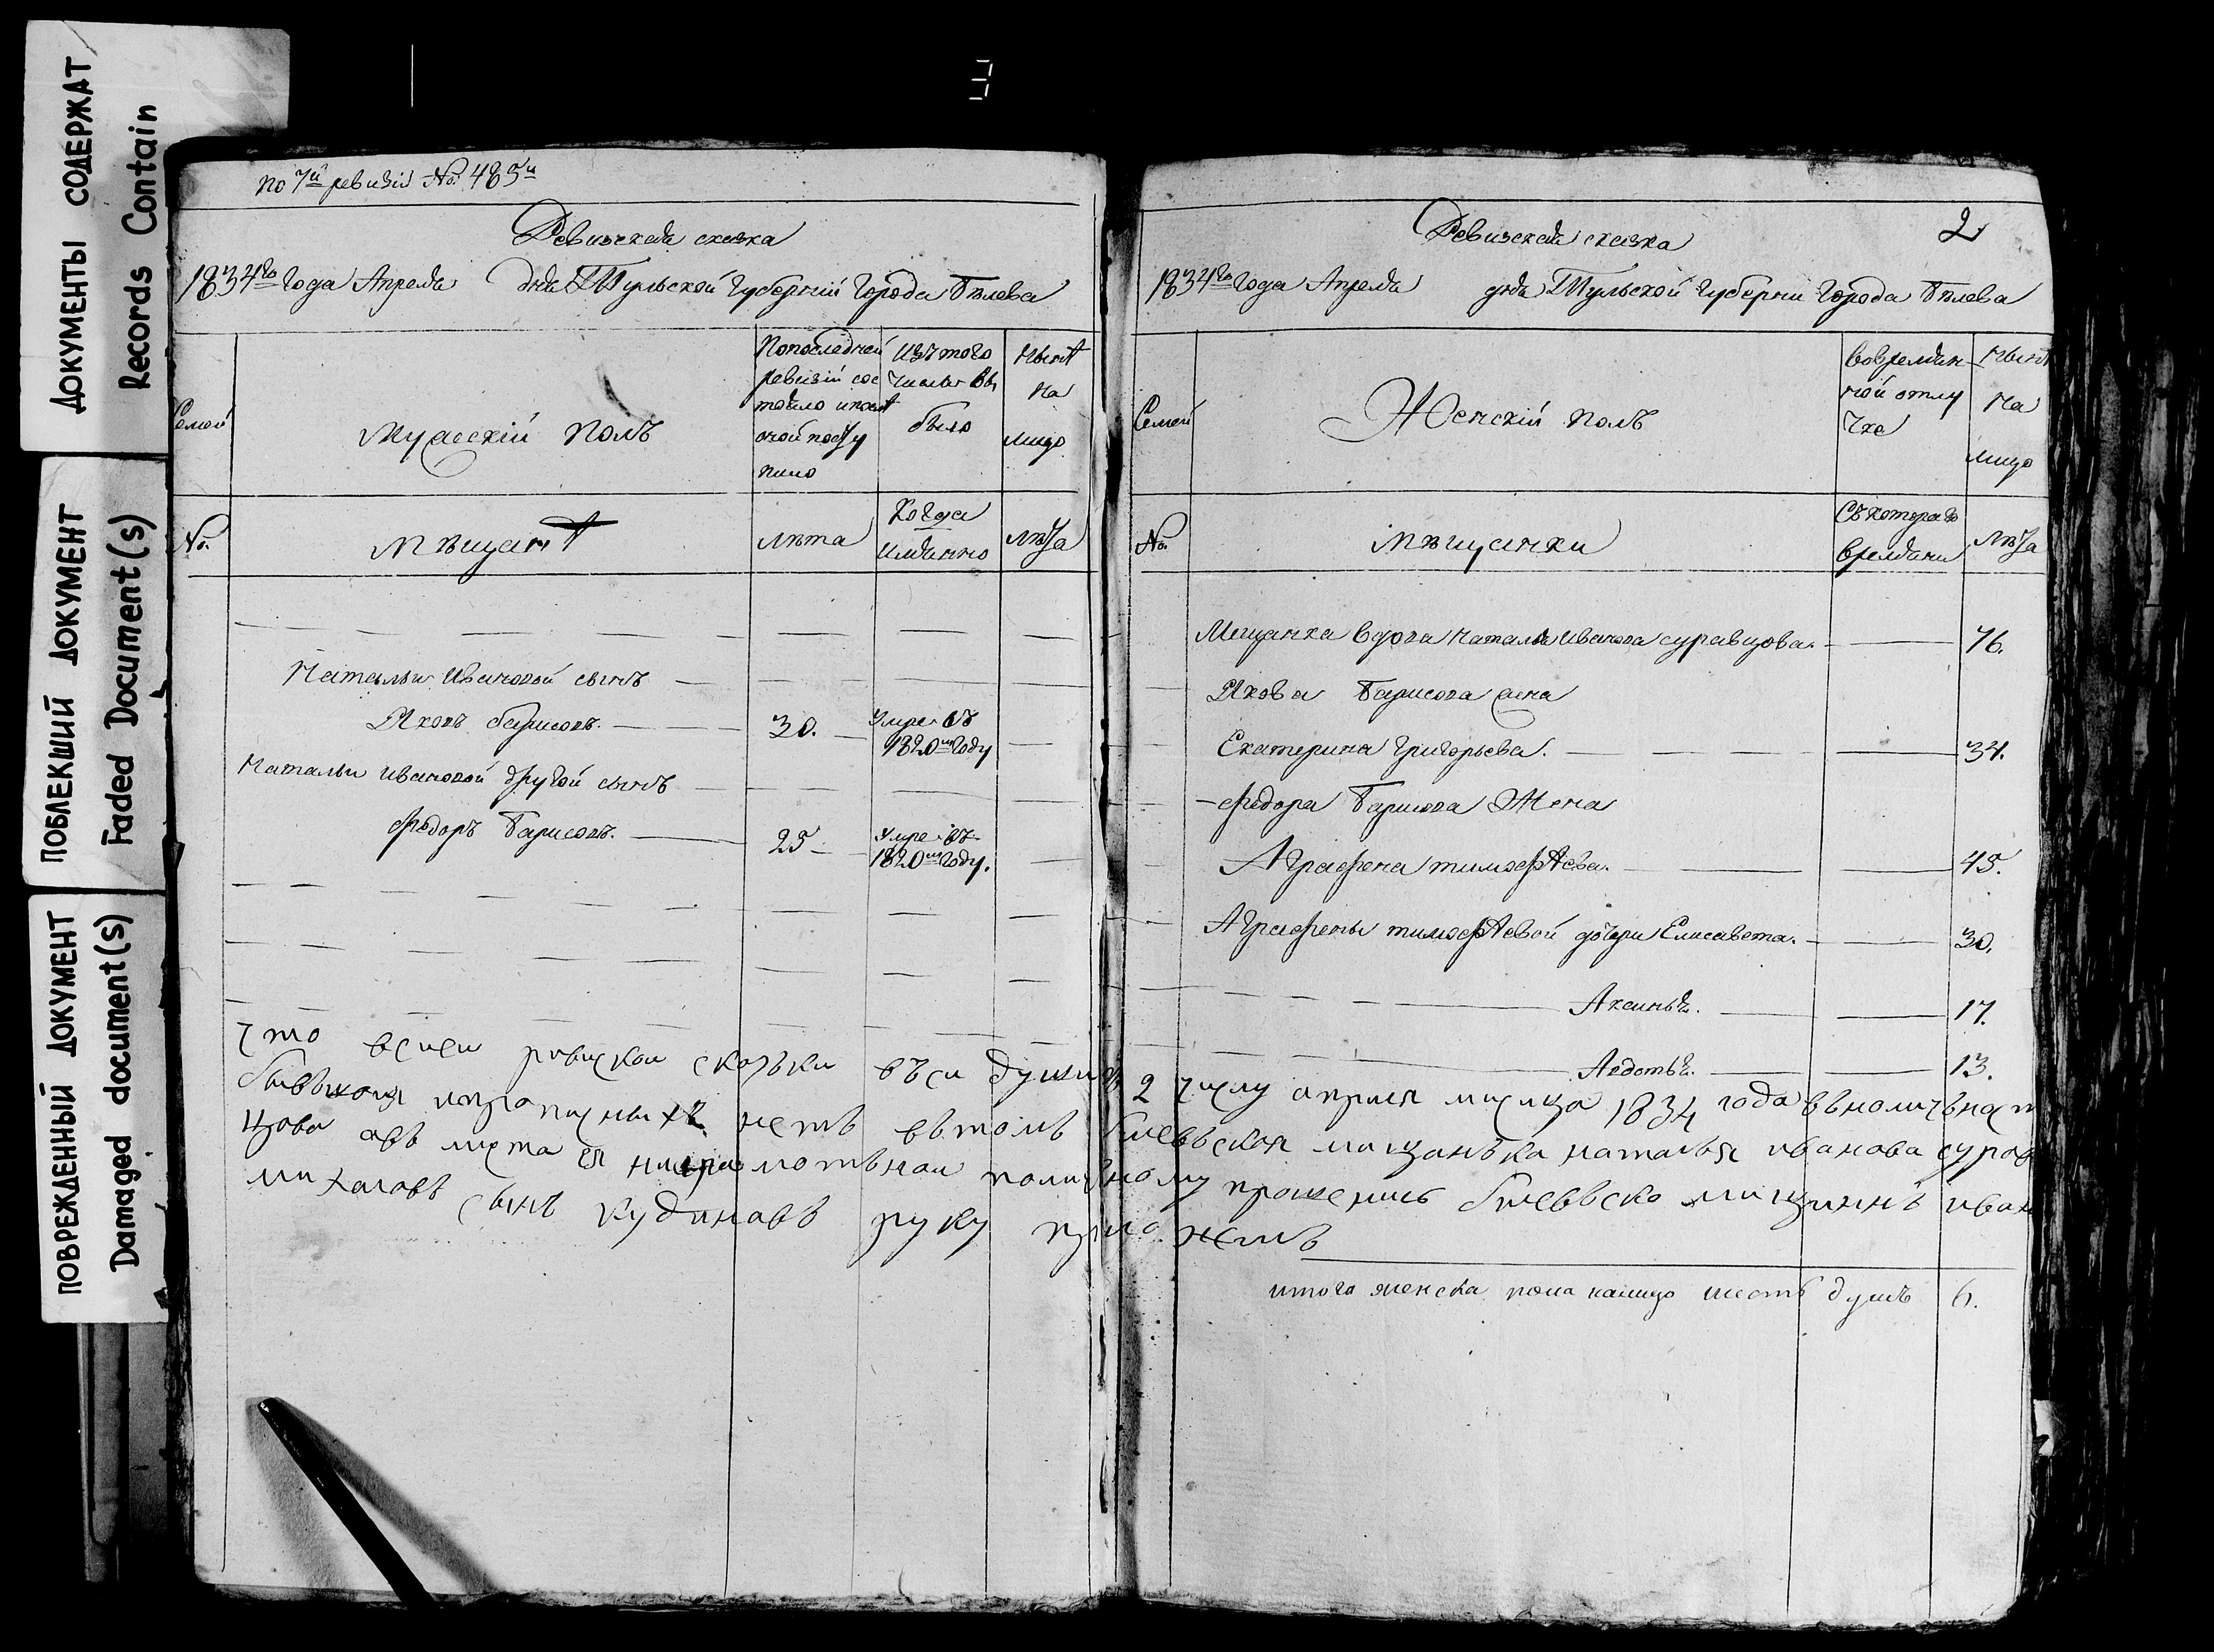 ДОКУМЕНТЫ СОДЕРЖАТ
Records Contain
ПОБЛЕКШИЙ ДОКУМЕНТ
Faded Document(s)
ПОВРЕЖДЕННЫЙ ДОКУМЕНТ
Damaged document(s)
3
по 7й ревизiи №: 485й
Ревизская сказка
1834го Года Апреля дня Тульской Губернiй Города Бѣлева
Семей
Мужескiй полъ
Попоследней
ревизiй сос
тояло ипосл
оной посту
пило
Изъ того
числа вы
было
Ныне
на
лицо
№.
Мѣщане
Лѣта
Когда
имянно
Лѣта
Натальи Ивановой сынъ
Яковъ борисовъ. 30. Умре въ
1820мъ Году
Натальи Ивановой другой сынъ
Федоръ Барисовъ. 25 Умре въ
1820мъ Году.
2
Ревизская сказка
1834го Года Апреля дня Тульской Губернии Города Бѣлева
Семей
Женскiй полъ
Вовремян
ной отлу
чке
Ныне
На
лицо
№.
Мѣщанки
Съ которого
времяни
Лѣта
Мещанка вдова Наталья Иванова суравцова. 76.
Якова Барисова жена
Екатерина Григорьева. 34.
Федора Барисова Жена
Аграфена тимофеева. 45.
Аграфены тимофеевой дочери Елисавета. 30.
Аксинья. 17.
Авдотья. 13.
что всией ревиской скаски въси души 2 числу априля месица 1834 года
нетъ втомъ белевьская мищанька наталья иванова суров
цова прошению белевско мищининъ иван
михаловъ сынъ кудиновъ руку приложилъ
итого женска пола налицо шесть душъ 6.